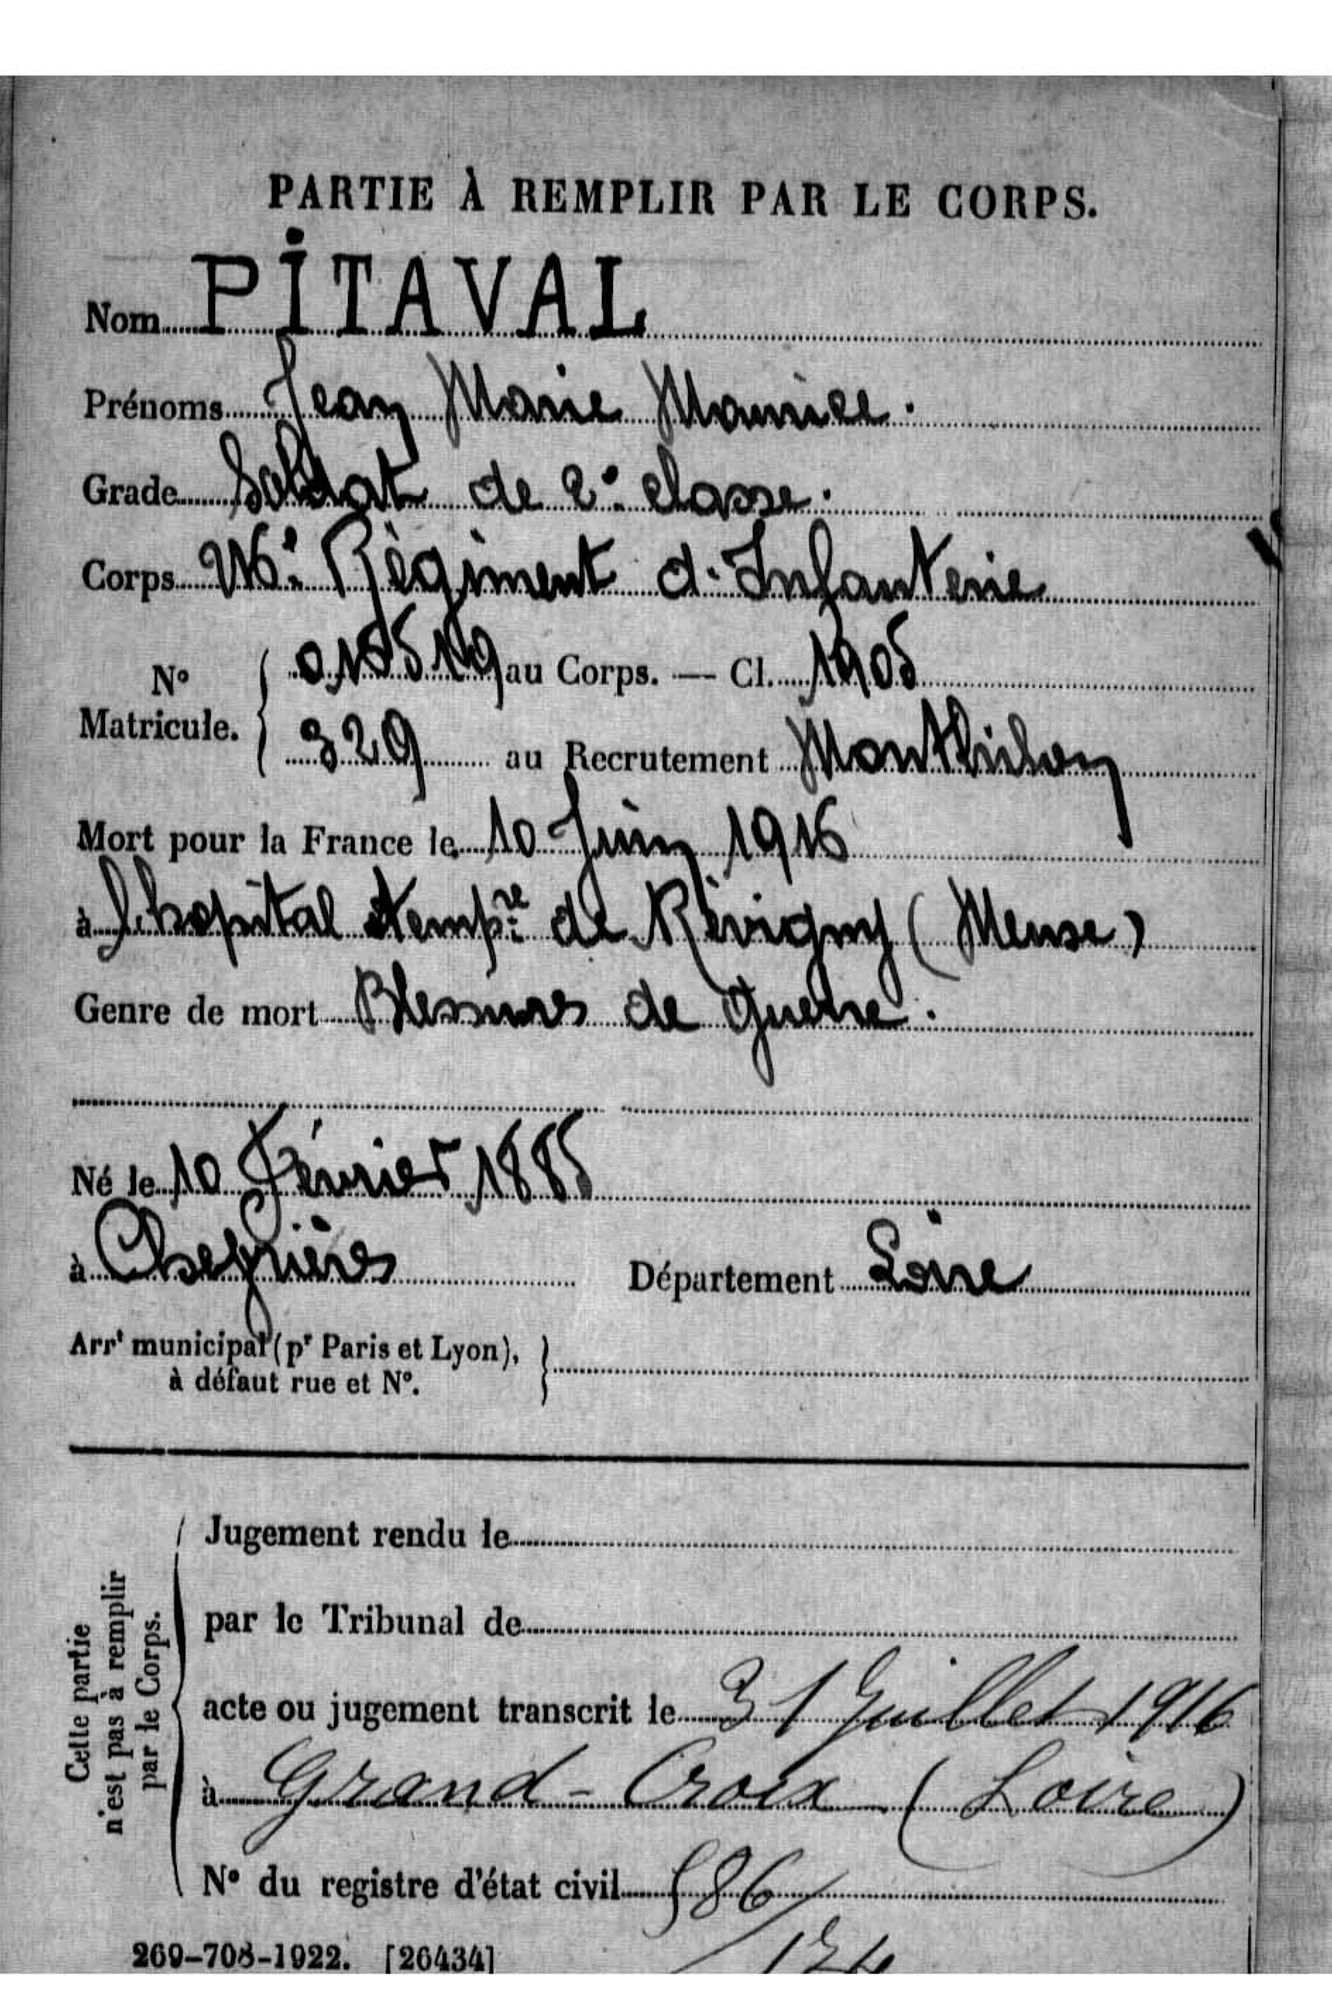 PARTIE À REMPLIR PAR LE CORPS.
Nom PITAVAL
Prénoms Jean Marie Maurice.
Grade Soldat de 2e classe.
Corps 216e Régiment d'Infanterie
No Matricule. { au Corps. — Cl. 1905
329 au Recrutement Montbrison
Mort pour la France le 10 Juin 1916
à l'hopital temp.re de Révigny (Meuse)
Genre de mort Blessures de guerre.
Né le 10 Février 1885
à Chevrières Département Loire
Arrt municipal (pr Paris et Lyon),
à défaut rue et No.
Cette partie
n'est pas à remplir
par le Corps.
Jugement rendu le
par le Tribunal de
acte ou jugement transcrit le 31 Juillet 1916
à Grand-Croix (Loire)
No du registre d'état civil 586/
124
269-708-1922. [26434]